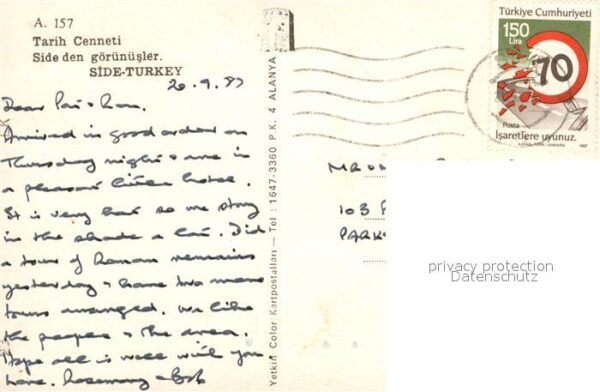 A. 157
Tarih Cenneti
Side den görünüşler.
SİDE-TURKEY
20.9.87
Dear Pat + Ron,
Arrived in good order on
Thursday night + are in
a pleasant little hotel.
It is very hot so we stay
in the shade a lot. Did
a tour of Roman remains
yesterday + have two more
tours arranged. We like
the people + the area.
Hope all is well with you
here. Rosemary + Bob
Yetkin Color Kartpostalları — Tel : 1647-3360 P.K. 4 ALANYA
Türkiye Cumhuriyeti
150
Lira
70
Posta
İşaretlere uyunuz.
1987
MR
103
PARK
privacy protection
Datenschutz